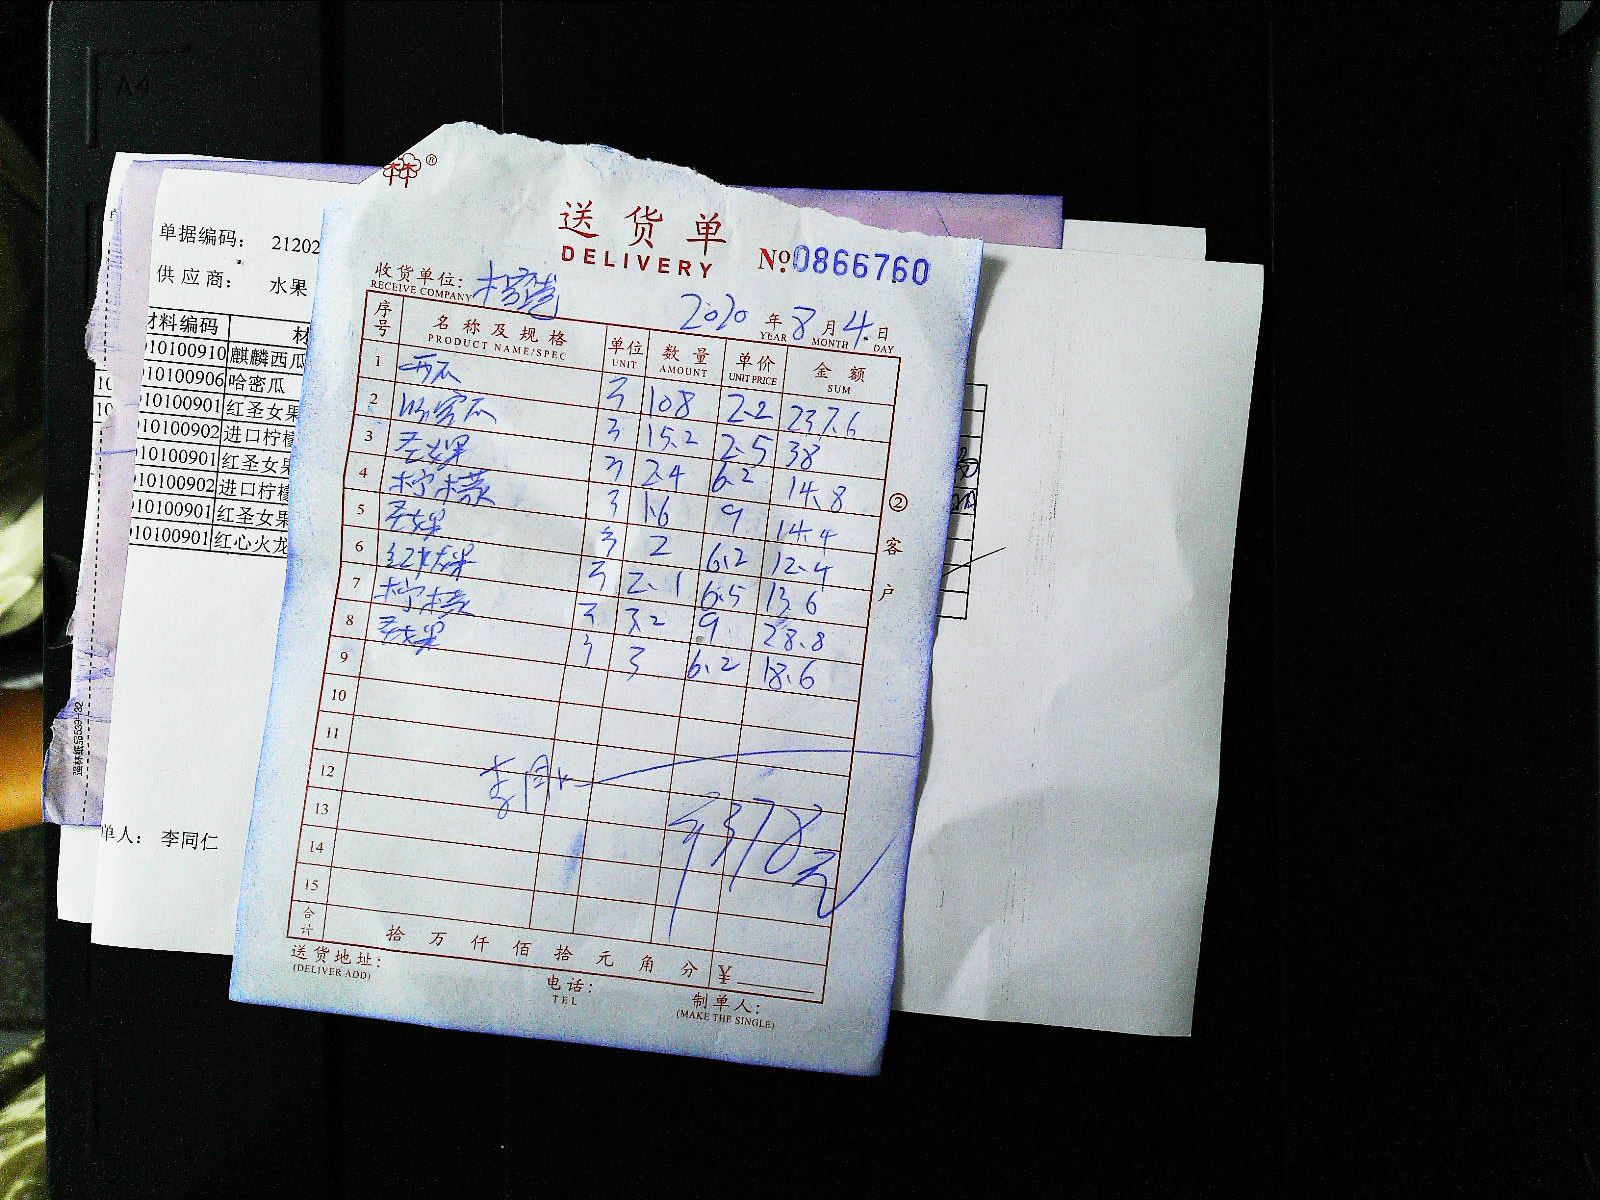 A4
®
送货单
DELIVERY
№0866760
收货单位:
RECEIVE COMPANY
2020 年 8 月 4 日
YEAR MONTH DAY
序号 名称及规格 单位 数量 单价 金额
PRODUCT NAME/SPEC UNIT AMOUNT UNIT PRICE SUM
1 西瓜 斤 108 2.2 237.6
2 哈密瓜 斤 15.2 2.5 38
3 圣女果 斤 2.4 6.2 14.8
4 柠檬 斤 1.6 9 14.4
5 圣女果 斤 2 6.2 12.4
6 红火龙果 斤 2.1 6.5 13.6
7 柠檬 斤 3.2 9 28.8
8 圣女果 斤 3 6.2 18.6
9
10
11
12
13
14
15
李同仁
¥378元
合计 拾 万 仟 佰 拾 元 角 分 ¥
送货地址:
(DELIVER ADD)
电话:
TEL
制单人:
(MAKE THE SINGLE)
②客户
单据编码: 21202
供应商: 水果
材料编码 材
010100910 麒麟西瓜
010100906 哈密瓜
010100901 红圣女果
010100902 进口柠檬
010100901 红圣女果
010100902 进口柠檬
010100901 红圣女果
010100901 红心火龙
单人: 李同仁
强林纸品539-32